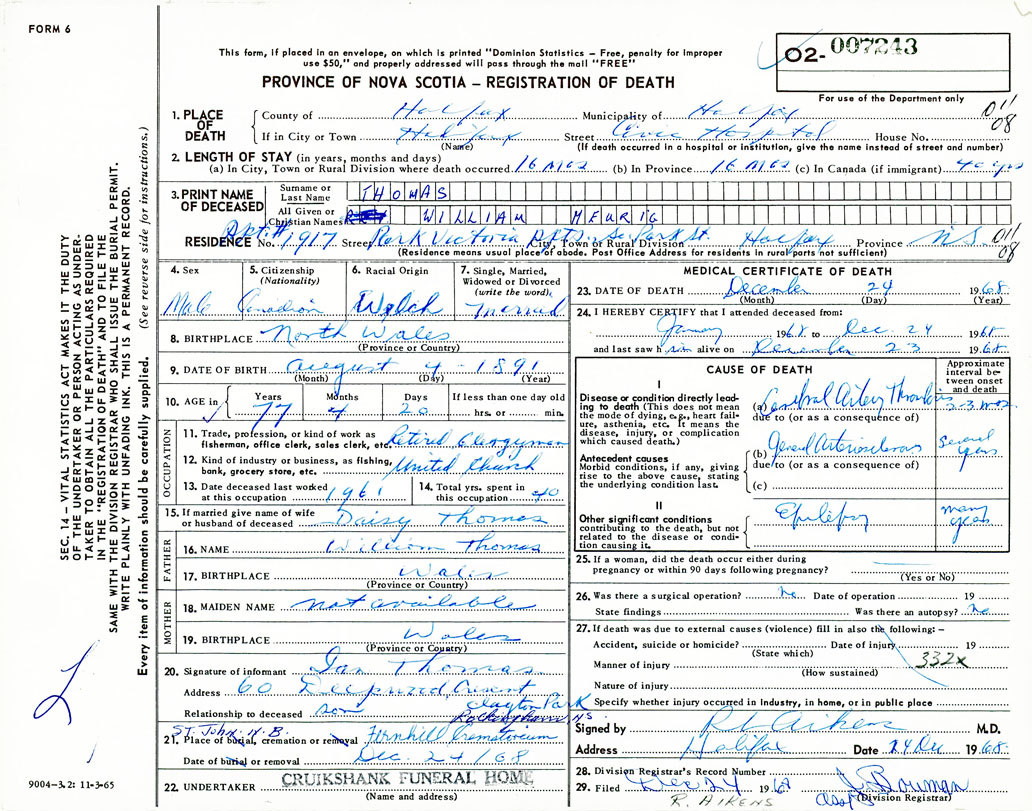 FORM 6
02- 007243
This form, if placed in an envelope, on which is printed "Dominion Statistics – Free, penalty for improper
use $50," and properly addressed will pass through the mail "FREE"
PROVINCE OF NOVA SCOTIA – REGISTRATION OF DEATH
For use of the Department only
011
08
1. PLACE OF DEATH
County of Halifax Municipality of Halifax
If in City or Town Halifax Street Civic Hospital House No.
(Name) (If death occurred in a hospital or institution, give the name instead of street and number)
2. LENGTH OF STAY (in years, months and days)
(a) In City, Town or Rural Division where death occurred 16 mos (b) In Province 16 mos (c) In Canada (if immigrant) 40 yrs
3. PRINT NAME OF DECEASED
Surname or Last Name THOMAS
All Given or Christian Names WILLIAM MEURIG
Apt.#
RESIDENCE No. 1917 Street Park Victoria Apts. So. Park St. City, Town or Rural Division Halifax Province N.S. 011
(Residence means usual place of abode. Post Office Address for residents in rural parts not sufficient) 08
4. Sex Male
5. Citizenship (Nationality) Canadian
6. Racial Origin Welch
7. Single, Married, Widowed or Divorced (write the word) Married
8. BIRTHPLACE North Wales
(Province or Country)
9. DATE OF BIRTH August 4 - 1891
(Month) (Day) (Year)
10. AGE in Years 77 Months 4 Days 20 If less than one day old hrs. or min.
OCCUPATION
11. Trade, profession, or kind of work as fisherman, office clerk, sales clerk, etc. Retired Clergyman
12. Kind of industry or business, as fishing, bank, grocery store, etc. United Church
13. Date deceased last worked at this occupation 1961
14. Total yrs. spent in this occupation 40
15. If married give name of wife or husband of deceased Daisy Thomas
FATHER
16. NAME William Thomas
17. BIRTHPLACE Wales
(Province or Country)
MOTHER
18. MAIDEN NAME not available
19. BIRTHPLACE Wales
(Province or Country)
20. Signature of informant Ian Thomas
Address 60 Crescent, Clayton Park
Relationship to deceased son Rockingham N.S
St. John, N.B.
21. Place of burial, cremation or removal Fernhill Crematorium
Date of burial or removal Dec. 24/68
22. UNDERTAKER CRUIKSHANK FUNERAL HOME
(Name and address)
MEDICAL CERTIFICATE OF DEATH
23. DATE OF DEATH December 24 1968.
(Month) (Day) (Year)
24. I HEREBY CERTIFY that I attended deceased from:
January 1968 to Dec. 24 1968
and last saw him alive on December 23 1968.
CAUSE OF DEATH
Approximate interval between onset and death
I
Disease or condition directly leading to death (This does not mean the mode of dying, e.g., heart failure, asthenia, etc. It means the disease, injury, or complication which caused death.)
(a) Cerebral Artery Thrombosis 2-3 mos
due to (or as a consequence of)
Antecedent causes
Morbid conditions, if any, giving rise to the above cause, stating the underlying condition last.
(b) General Arteriosclerosis several years
due to (or as a consequence of)
(c)
II
Other significant conditions contributing to the death, but not related to the disease or condition causing it.
Epilepsy many years
25. If a woman, did the death occur either during pregnancy or within 90 days following pregnancy?
(Yes or No)
26. Was there a surgical operation? No Date of operation 19
State findings Was there an autopsy? No
27. If death was due to external causes (violence) fill in also the following: –
Accident, suicide or homicide? Date of injury 19
(State which) 332x
Manner of injury
(How sustained)
Nature of injury
Specify whether injury occurred in Industry, in home, or in public place
Signed by R L Aikens M.D.
Address Halifax Date 24 Dec 1968.
28. Division Registrar's Record Number
29. Filed Dec 24 1968 J. Bowman
R. AIKENS (Division Registrar)
SEC. 14 – VITAL STATISTICS ACT MAKES IT THE DUTY
OF THE UNDERTAKER OR PERSON ACTING AS UNDER-
TAKER TO OBTAIN ALL THE PARTICULARS REQUIRED
IN THE "REGISTRATION OF DEATH" AND TO FILE THE
SAME WITH THE DIVISION REGISTRAR WHO SHALL ISSUE THE BURIAL PERMIT.
WRITE PLAINLY WITH UNFADING INK. THIS IS A PERMANENT RECORD.
Every item of information should be carefully supplied. (See reverse side for instructions.)
9004-3.2: 11-3-65